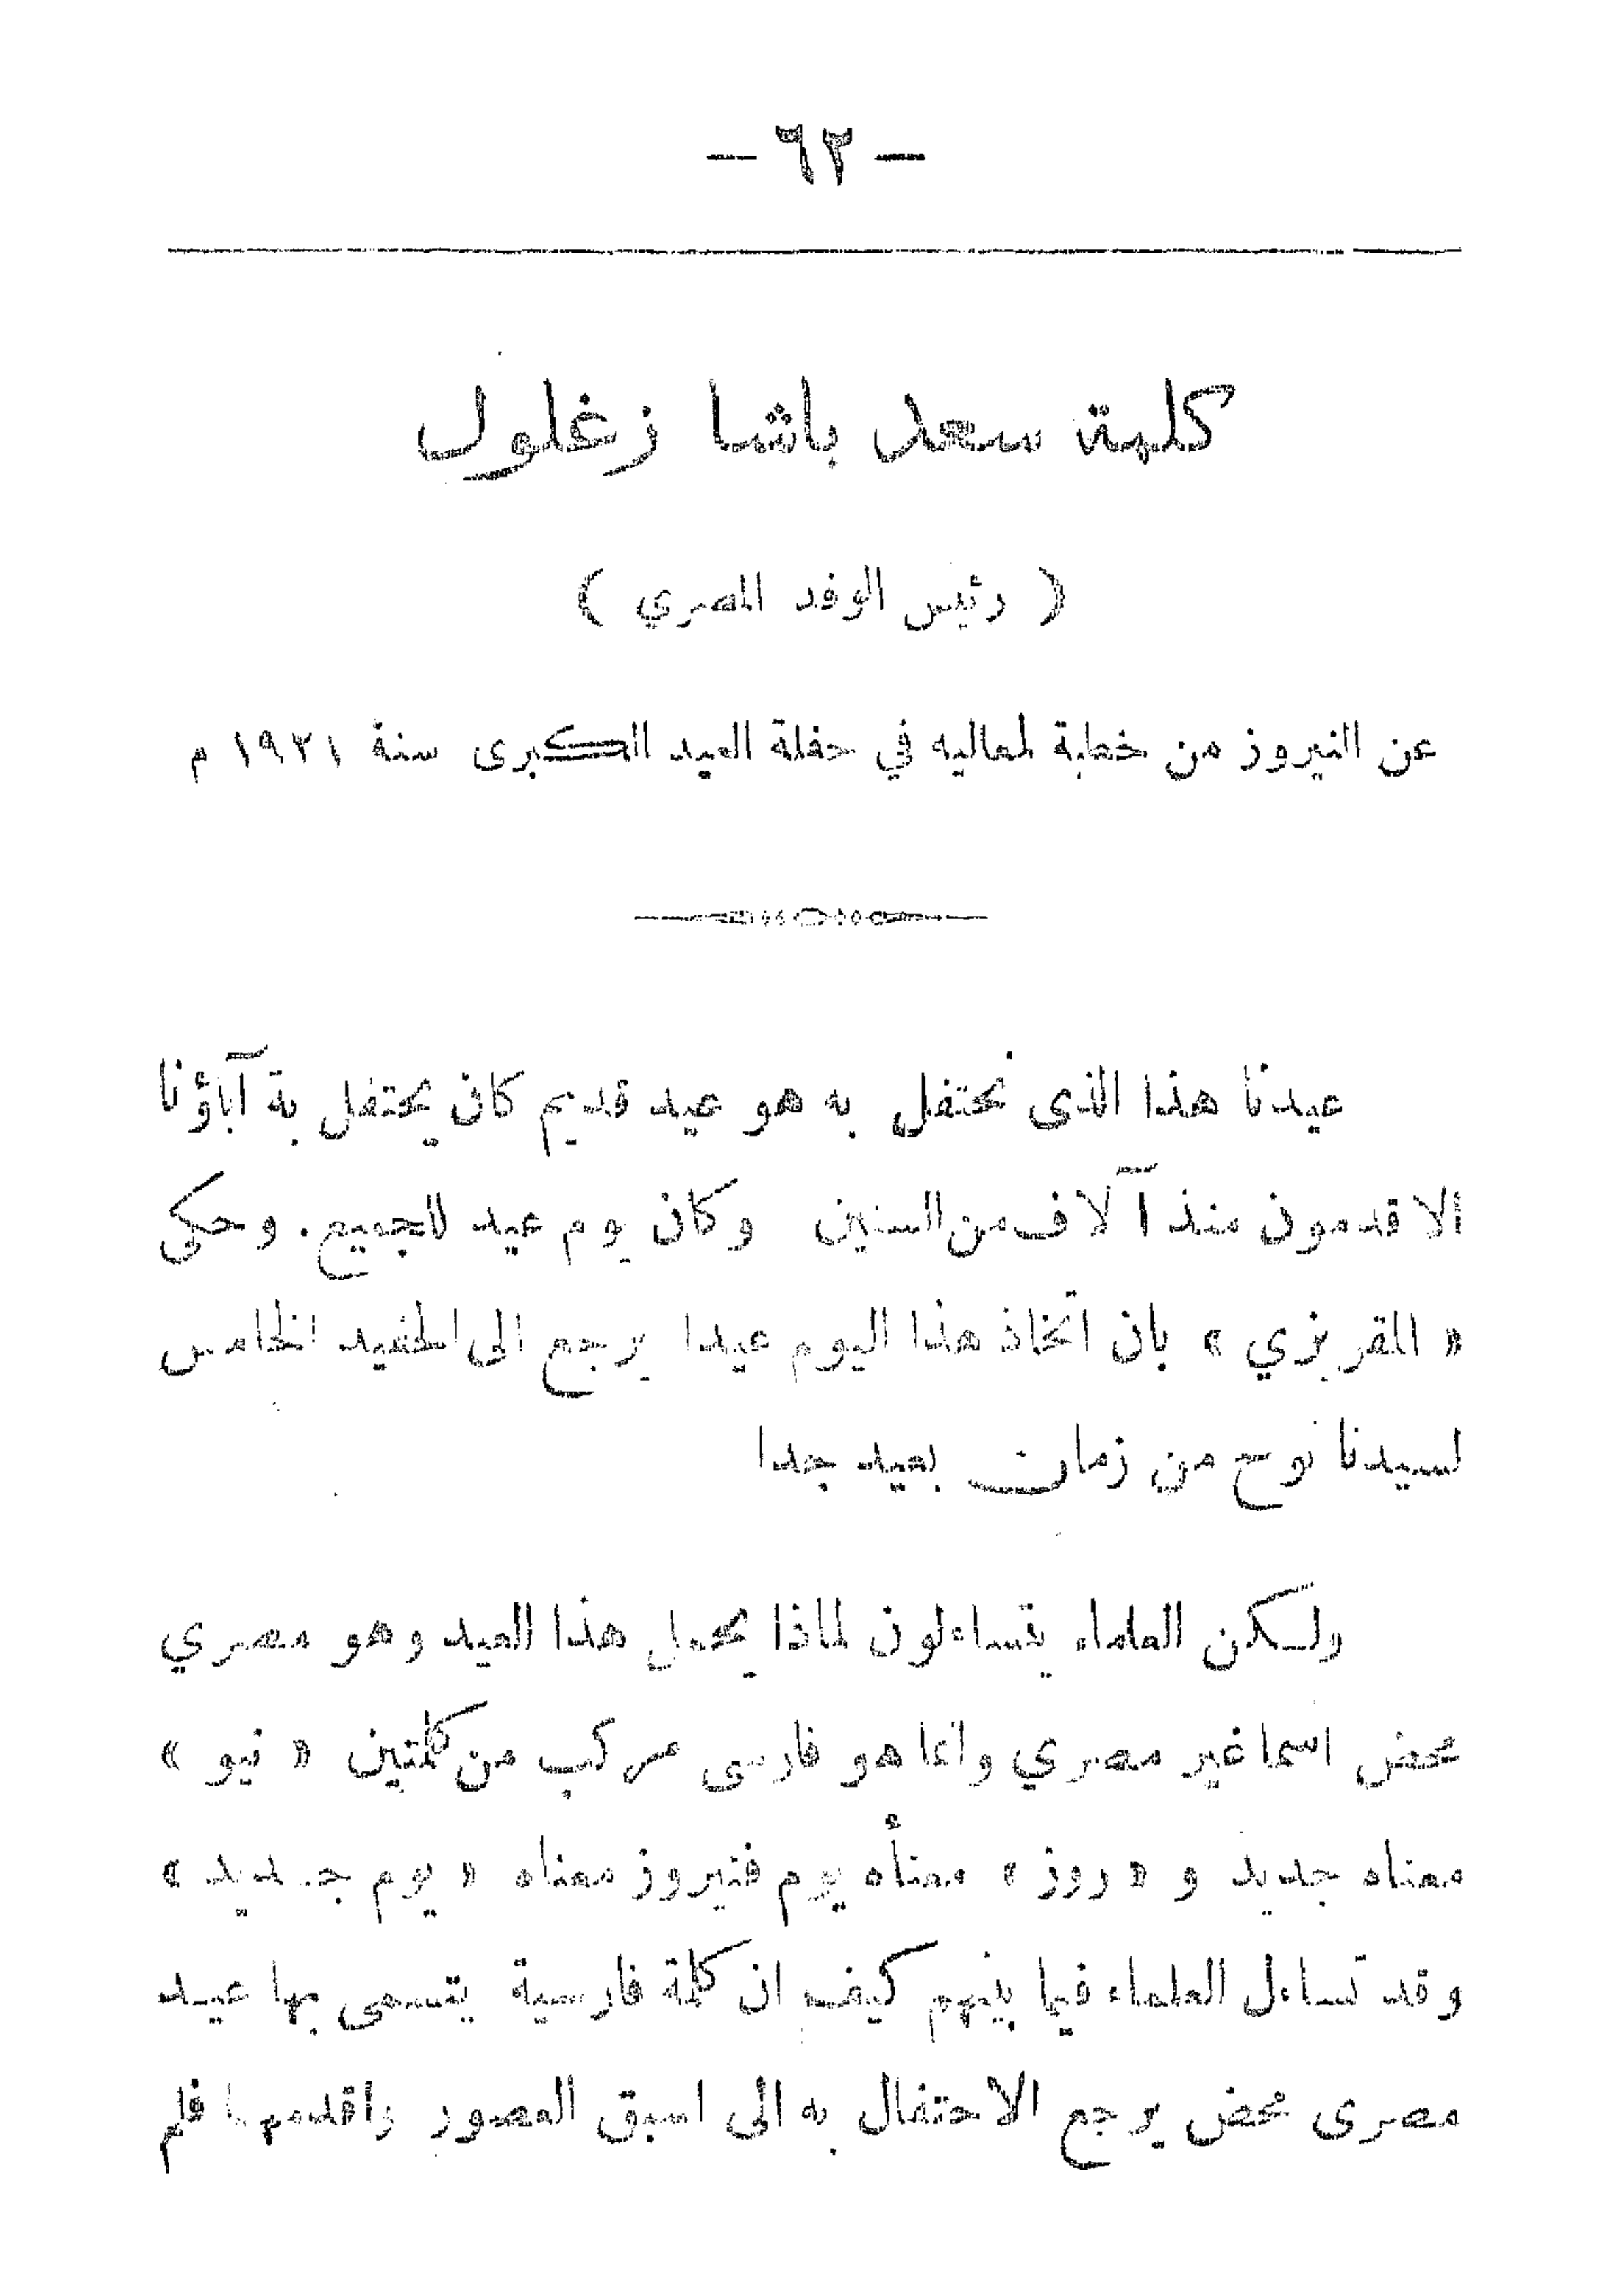 — ٦٢ —
كلمة سعد باشا زغلول
( رئيس الوفد المصري )
عن النيروز من خطبة لمعاليه في حفلة العيد الكبرى سنة ١٩٢١ م
عيدنا هذا الذى نحتفل به هو عيد قديم كان يحتفل بة آباؤنا
الاقدمون منذ آلاف من السنين وكان يوم عيد للجميع. وحكى
« المقريزي » بان اتخاذ هذا اليوم عيدا يرجع الى الحفيد الخامس
لسيدنا نوح من زمان بعيد جدا
ولكن العلماء يتساءلون لماذا يحمل هذا العيد وهو مصري
محض اسما غير مصري وانما هو فارسى مركب من كلمتين « نيو »
معناه جديد و « روز » معنأه يوم فنيروز معناه « يوم جديد »
وقد تساءل العلماء فيما بينهم كيف ان كلمة فارسية يتسمى بها عيد
مصرى محض يرجع الاحتفال به الى اسبق العصور واقدمها فلم